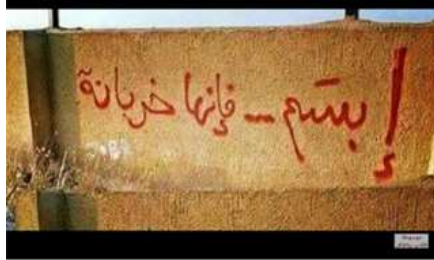 إبتسم -- فإنها خربانة